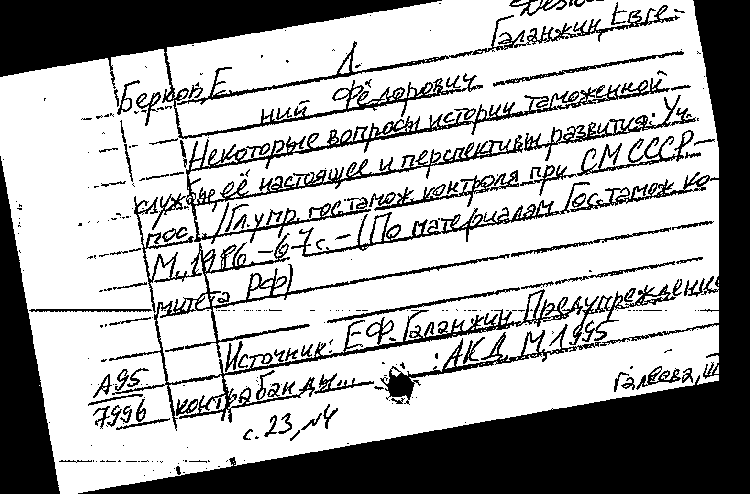 Галанжин, Евге-
Берков, Е. 1.
ний Фёдорович
Некоторые вопросы истории таможенной
службы, её настоящее и перспективы развития: Уч.
пос... / Гл. упр. гос. тамож. контроля при СМ СССР.-
М., 1986.-67с.-(По материалам Гос. тамож. ко-
митета РФ)
Источник: Е.Ф. Галанжин Предупреждение
контрабанды... : АКД М. 1995
А95
7996
с. 23, №4